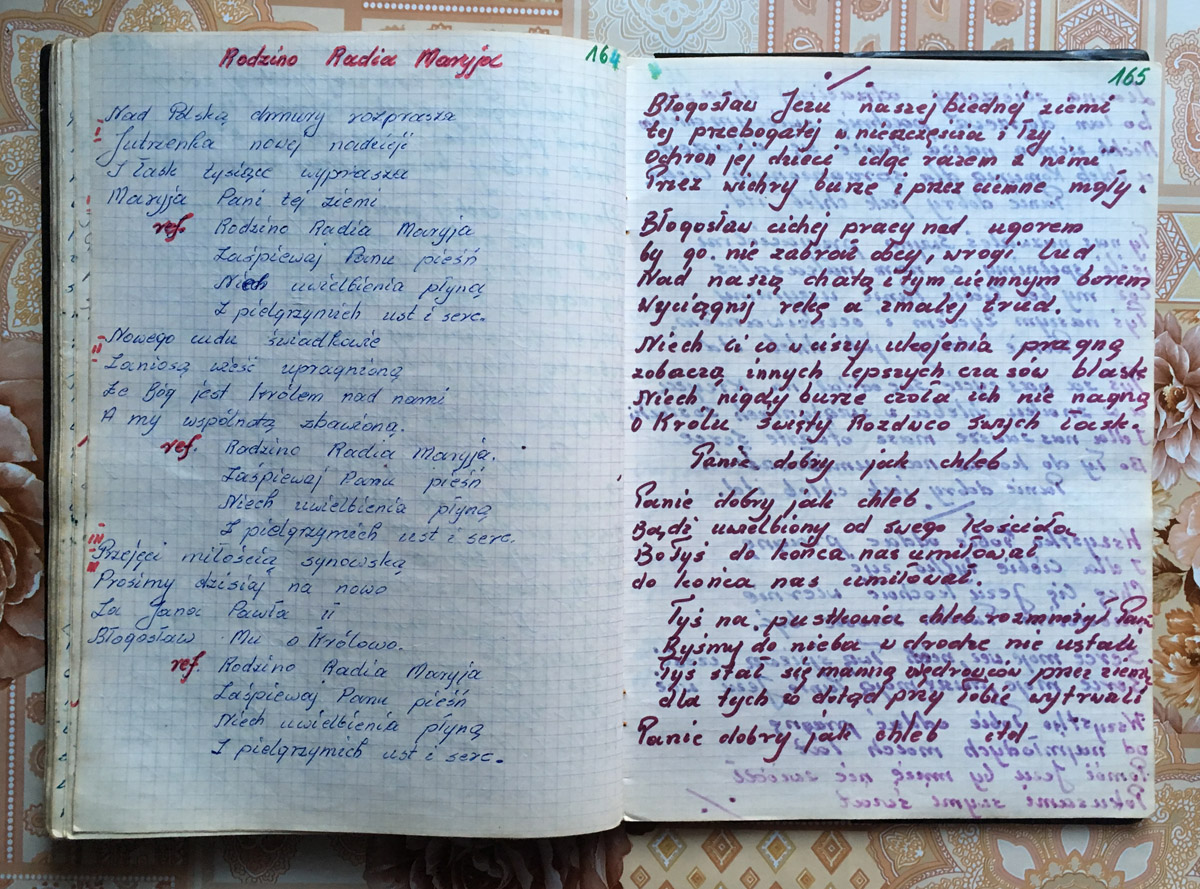 Rodzino Radia Maryja
164
I
Nad Polską chmury rozprasza
Jutrzenka nowej nadzieji
I łask tysiące wyprasza
Maryja Pani tej ziemi
ref. Rodzino Radia Maryja
Zaśpiewaj Panu pieśń
Niech uwielbienia płyną
Z pielgrzymich ust i serc.
II
Nowego cudu świadkowie
Zaniosą wieść upragnioną
Że Bóg jest królem nad nami
A my wspólnotą zbawioną.
ref. Rodzino Radia Maryja.
Zaśpiewaj Panu pieśń
Niech uwielbienia płyną
Z pielgrzymich ust i serc.
III
Przejęci miłością synowską
Prosimy dzisiaj na nowo
Za Jana Pawła II
Błogosław Mu o Królowo.
ref. Rodzino Radia Maryja
Zaśpiewaj Panu pieśń
Niech uwielbienia płyną
Z pielgrzymich ust i serc.
165
Błogosław Jezu naszej biednej ziemi
tej przebogatej w nieszczęścia i łzy
Ochroń jej dzieci idąc razem z nimi
Przez wichry burze i przez ciemne mgły.
Błogosław cichej pracy nad ugorem
by go nie zabrał obcy, wrogi lud
Nad naszą chatą i tym ciemnym borem
Wyciągnij rękę a zmalej trud.
Niech ci co w ciszy ukojenia pragną
zobaczą innych lepszych czasów blask
Niech nigdy burze czoła ich nie nagną
O Królu święty Rozdawco swych łask.
Panie dobry jak chleb
Panie dobry jak chleb
Bądź uwielbiony od swego Kościoła
Boś Tyś do końca nas umiłował
do końca nas umiłował.
Tyś na pustkowiu chleb rozmnożył Panie
Byśmy do nieba w drodze nie ustali
Tyś stał się manną wędrowców przez ziemię
dla tych co dotąd przy Tobie wytrwali
Panie dobry jak chleb itd.